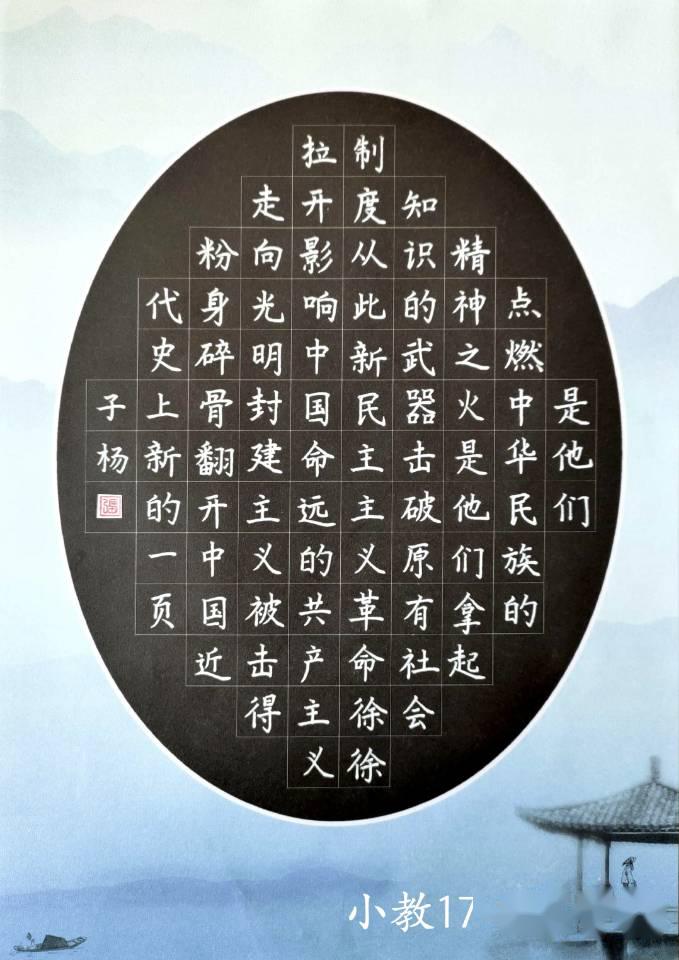 是他们
点燃中华民族的
精神之火是他们拿起
知识的武器击破原有社会
制度从此新民主主义革命徐徐
拉开影响中国命远的共产主义
走向光明封建主义被击得
粉身碎骨翻开中国近
代史上新的一页
子杨
小教17